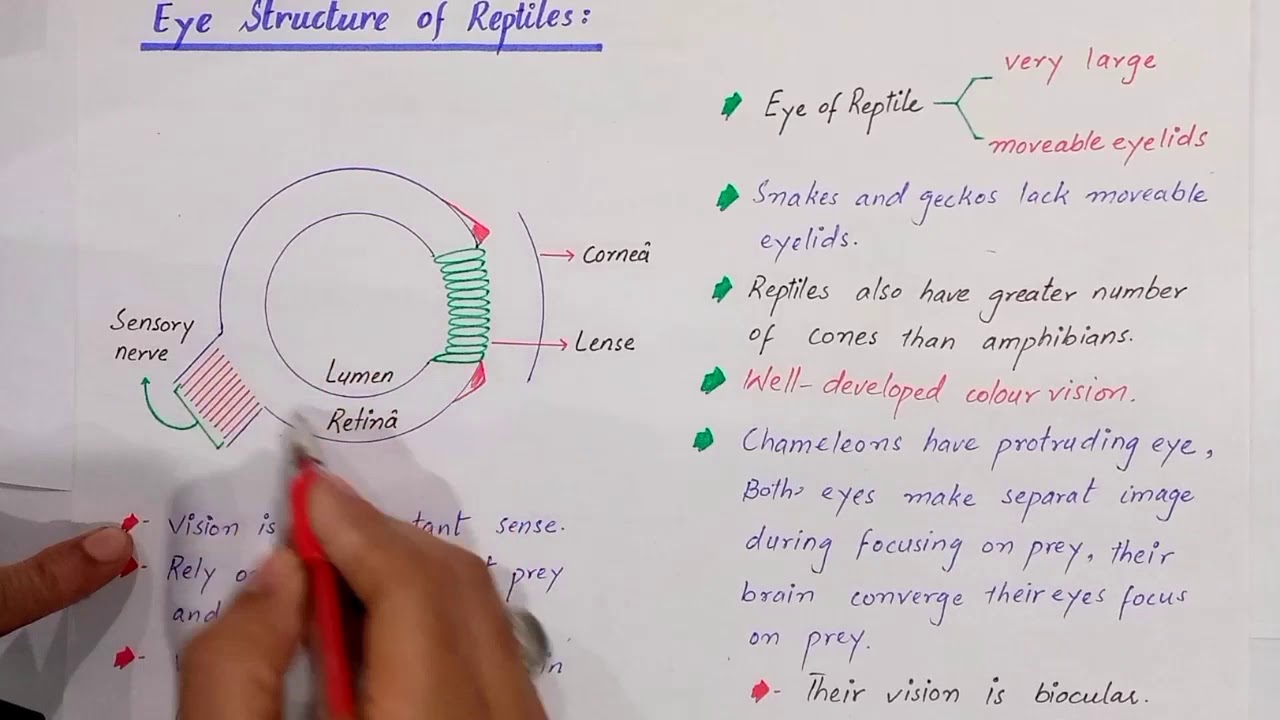 Eye Structure of Reptiles:
Corneâ
Lense
Sensory
nerve
Lumen
Retinâ
Vision is tant sense.
Rely prey
and
in
very large
Eye of Reptile
moveable eyelids
Snakes and geckos lack moveable
eyelids.
Reptiles also have greater number
of cones than amphibians.
Well-developed colour vision.
Chameleons have protruding eye,
Both eyes make separat image
during focusing on prey, their
brain converge their eyes focus
on prey.
Their vision is biocular.